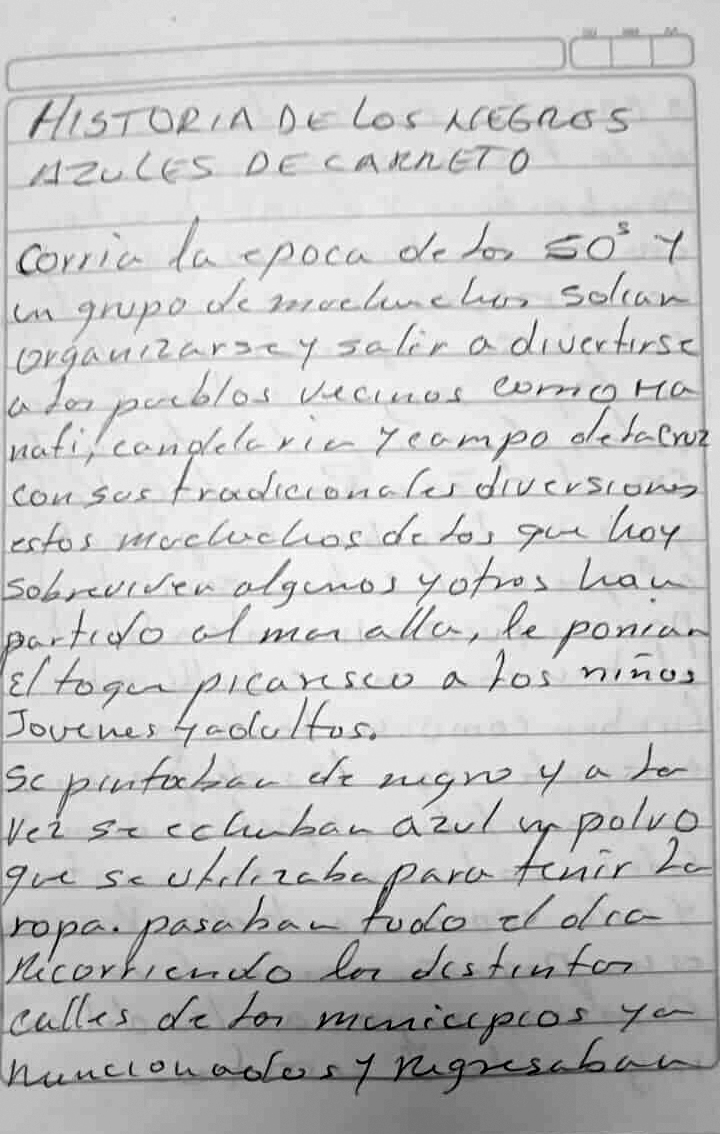 HISTORIA DE LOS NEGROS
AZULES DE CARRETO
Corria la epoca de los 50s y
un grupo de muchachos solian
organizarse y salir a divertirse
a los pueblos vecinos como Ma
nati, candelaria y campo de la Cruz
con sus tradicionales diversiones
estos muchachos de los que hoy
sobreviven algunos y otros han
partido al mas alla, le ponian
El toque picaresco a los niños
Jovenes y adultos.
Se pintaban de negro y a la
vez se echaban azul un polvo
que se utilizaba para tenir la
ropa. pasaban todo el dia
Recorriendo las distintas
calles de los municipios ya
mencionados y regresaban